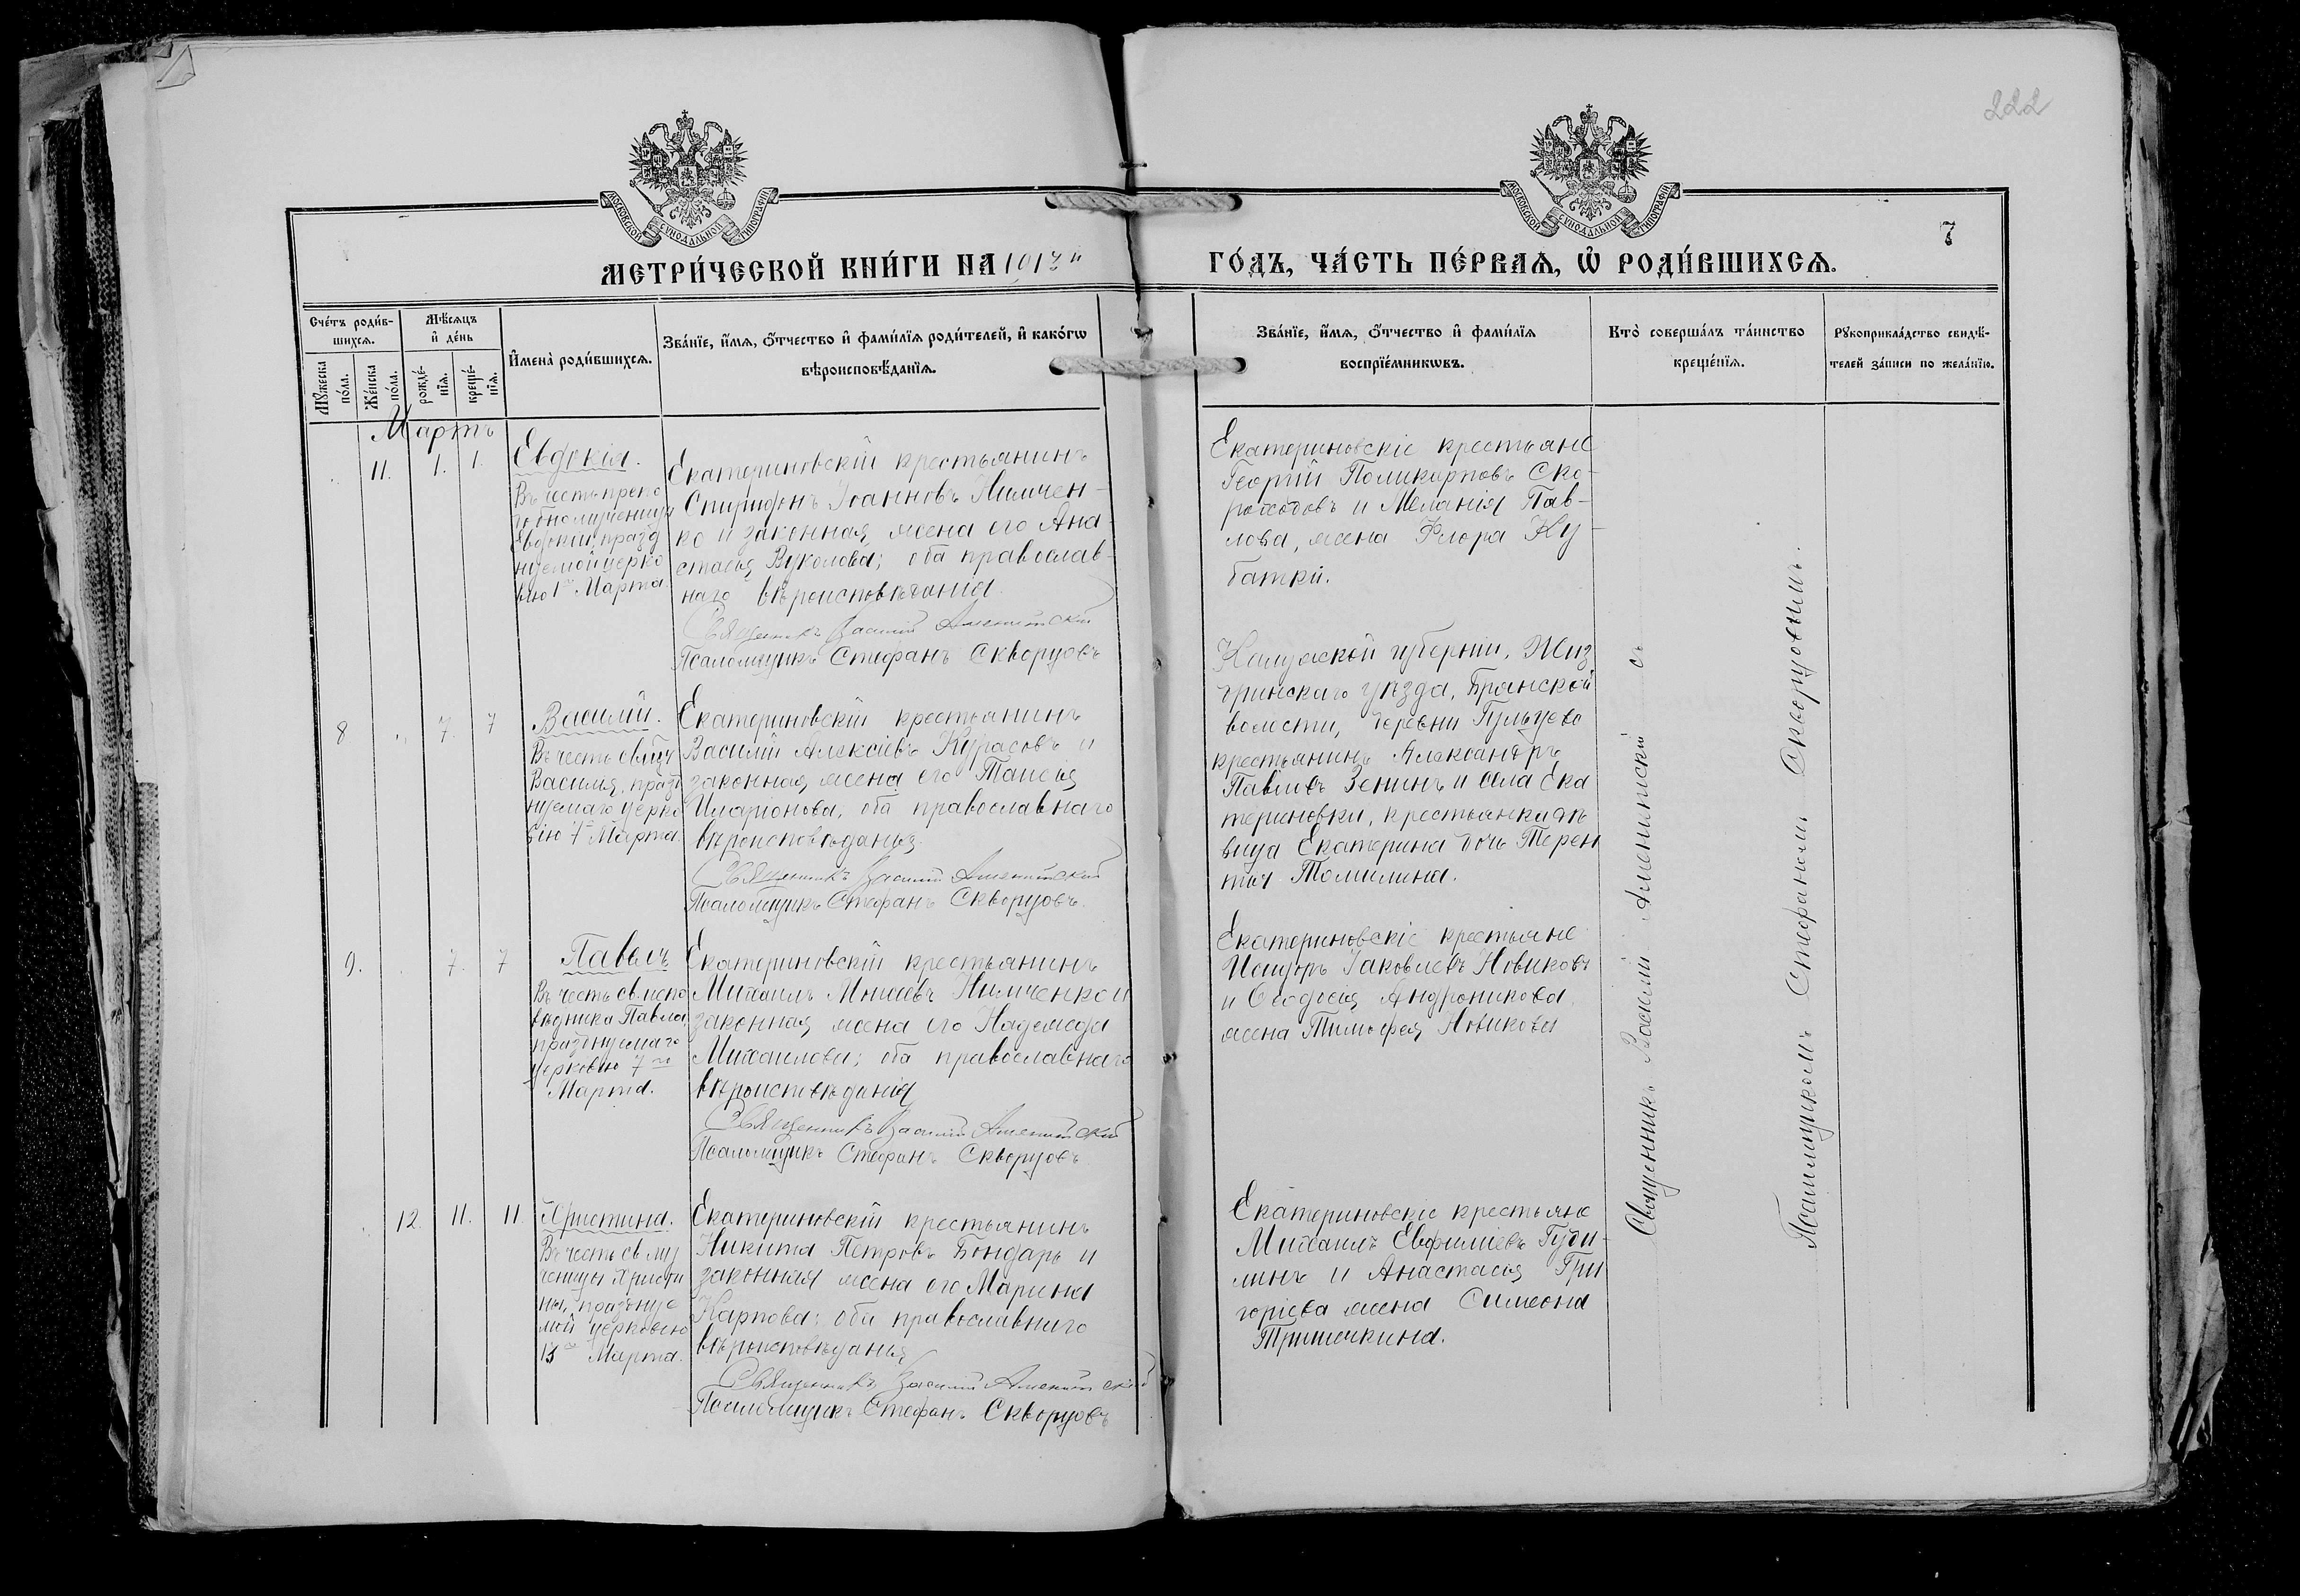 222
МОСКОВСКОЙ СѴНОДАЛЬНОЙ ТИПОГРАФІИ
МОСКОВСКОЙ СѴНОДАЛЬНОЙ ТИПОГРАФІИ
7
МЕТРИ́ЧЕСКОЙ КНИ́ГИ НА 1913 ГО́ДЪ, ЧА́СТЬ ПЕ́РВАѦ, Ѽ РОДИ́ВШИХСѦ.
Сче́тъ роди́в-
шихсѧ.
Мѣ́сѧцъ
и҆ де́нь
Мꙋ́жеска
по́ла.
Же́нска
по́ла.
рожде́-
нїѧ.
креще́-
нїѧ.
И҆мена̀ роди́вшихсѧ.
Зва́нїе, и҆́мѧ, ѻ҆́тчество и҆ фами́лїѧ роди́телей, и҆ како́гѡ
вѣроисповѣ́данїѧ.
Зва́нїе, и҆́мѧ, ѻ҆́тчество и҆ фами́лїѧ
воспрїе́мникѡвъ.
Кто̀ соверша́лъ та́инство
креще́нїѧ.
Рꙋкоприкла́дство свидѣ́-
телей за́писи по жела́нїю.
Мартъ
11. 1. 1.
Евдокія.
Въ честь препо
добномученицы
Евдокіи, празд
нуемой церко
вію 1го Марта
Екатериновскій крестьянинъ
Спиридонъ Іоанновъ Нимчен-
ко и законная жена его Ана-
стасія Вуколова; оба православ-
наго вѣроисповѣданія
Священникъ Василій Аменитскій
Псаломщикъ Стефанъ Скворцовъ
Екатериновскіе крестьяне
Георгій Поликарповъ Ско-
роходовъ и Меланія Пав-
лова, жена Флора Ку-
батки.
8 7. 7
Василій.
Въ честь свмуч
Василія, празд
нуемаго церко
вію 7го Марта.
Екатериновскій крестьянинъ
Василій Алексіевъ Курасовъ и
законная жена его Таисія
Иларионова; оба православнаго
вѣроисповѣданія.
Священникъ Василій Аменитскій
Псаломщикъ Стефанъ Скворцовъ.
Калужской губерніи, Жиз
дринскаго уѣзда,
волости, деревни Гульцево
крестьянинъ Александръ
Павловъ Зенинъ и села Ека
териновки, крестьянка дѣ
вица Екатерина дочь Терен
тія Томилина.
9. 7. 7
Павелъ
Въ честь св. испо
вѣдника Павла,
празднуемаго
церковію 7го
Марта.
Екатериновскій крестьянинъ
Михаилъ Моисеевъ Нимченко и
законная жена его Надежда
Михаилова; оба православнаго
вѣроисповѣданія
Священникъ Василій Аменитскій
Псаломщикъ Стефанъ Скворцовъ
Екатериновскіе крестьяне
Исидоръ Іаковлевъ Новиковъ
и Ѳеодосія Андроникова,
жена Тимофея Новикова
12. 11. 11.
Христина.
Въ честь св. му
ченицы Христи
ны, празднуе
мой церковію
13го Марта.
Екатериновскій крестьянинъ
Никита Петровъ Бондарь и
законная жена его Марина
Карпова; оба православнаго
вѣроисповѣданія
Священникъ Василій Аменитскій
Псаломщикъ Стефанъ Скворцовъ
Екатериновскіе крестьяне
Михаилъ Евфиміевъ Гуди-
линъ и Анастасія Гри
горіева жена Симеона
Тришечкина.
Священникъ Василій Аменитскій съ
Псаломщикомъ Стефаномъ Скворцовымъ.